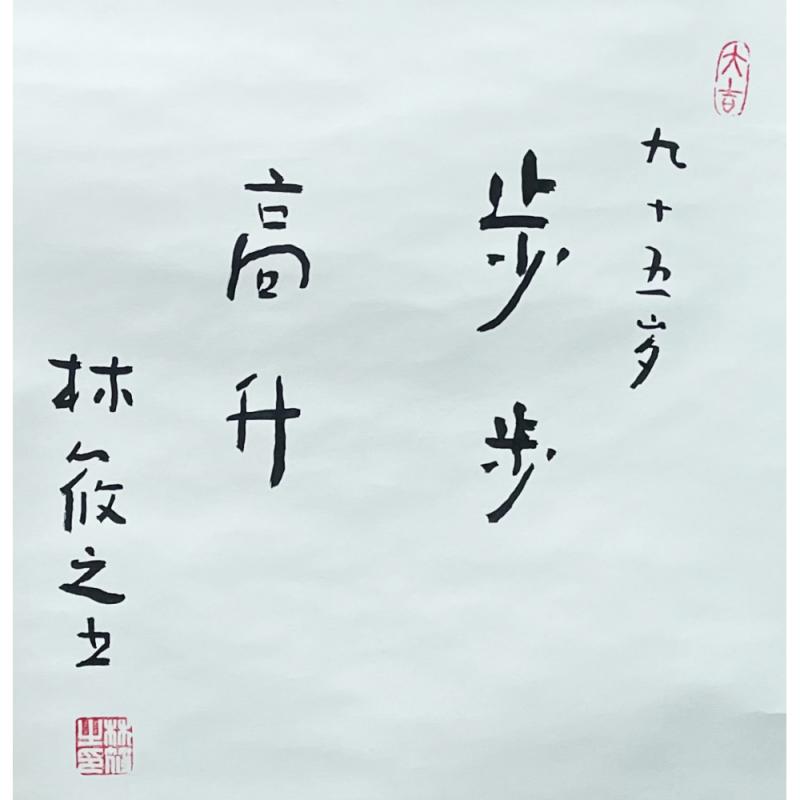 大吉
九十五岁
步步
高升
林筱之书
林筱
之印